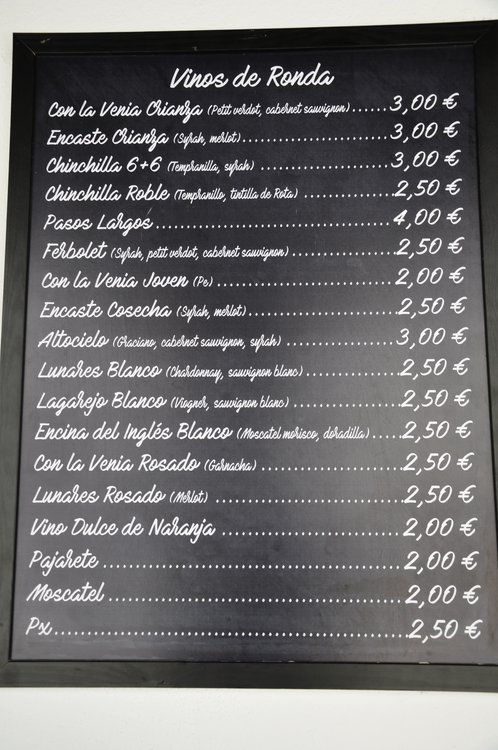 Vinos de Ronda
Con la Venia Crianza (Petit verdot, cabernet sauvignon)......3,00 €
Encaste Crianza (Syrah, merlot)..........................3,00 €
Chinchilla 6+6 (Tempranilla, syrah) .......................3,00 €
Chinchilla Roble (Tempranillo, tintilla de Rota) ................2,50 €
Pasos Largos..........................................4,00 €
Ferbolet (Syrah, petit verdot, cabernet sauvignon)...................2,50 €
Con la Venia Joven (Pe)................................2,00 €
Encaste Cosecha (Syrah, merlot)..........................2,50 €
Altocielo (Graciano, cabernet sauvignon, syrah) ....................3,00 €
Lunares Blanco (Chardonnay, sauvignon blanc).................2,50 €
Lagarejo Blanco (Viogner, sauvignon blanc) ...................2,50 €
Encina del Inglés Blanco (Moscatel morisco, doradilla).....2,50 €
Con la Venia Rosado (Garnacha)........................2,50 €
Lunares Rosado (Merlot)................................2,50 €
Vino Dulce de Naranja ..............................2,00 €
Pajarete ................................................2,00 €
Moscatel................................................2,00 €
Px.........................................................2,50 €